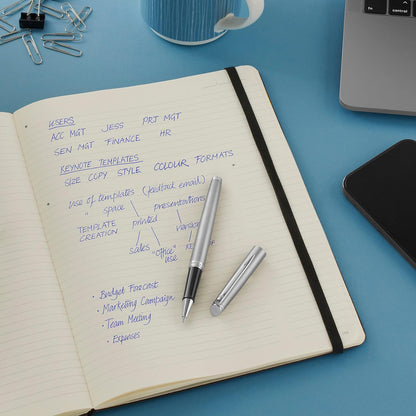 USERS
ACC MGT JESS PRJ MGT
SEN MGT FINANCE HR
KEYNOTE TEMPLATES
SIZE COPY STYLE COLOUR FORMATS
Use of templates (feedback email)
" space printed presentations
TEMPLATE CREATION
sales "Office" use
• Budget Forecast
• Marketing Campaign
• Team Meeting
• Expenses
control